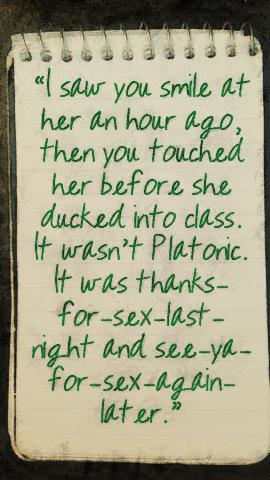 “I saw you smile at
her an hour ago,
then you touched
her before she
ducked into class.
It wasn't Platonic.
It was thanks-
for-sex-last-
night and see-ya-
for-sex-again-
later.”